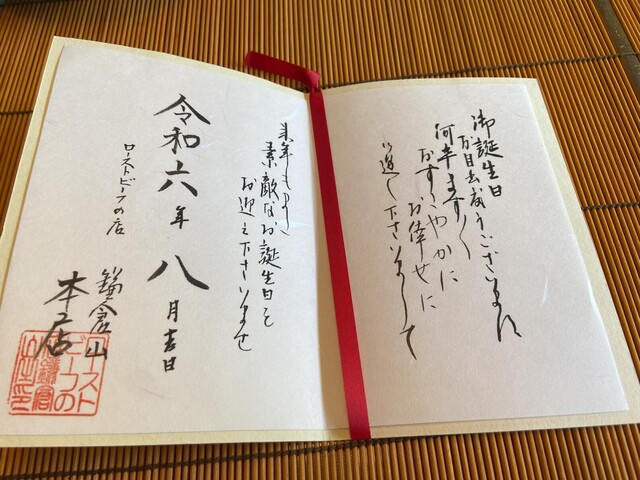 御誕生日
お目出度うございます
何卒ますます
おすこやかに
お倖せに
お過し下さいまして
来年もまた
素敵なお誕生日を
お迎え下さいませ
令和六年八月吉日
ローストビーフの店
鎌倉山
本店
ロースト
ビーフの
鎌倉